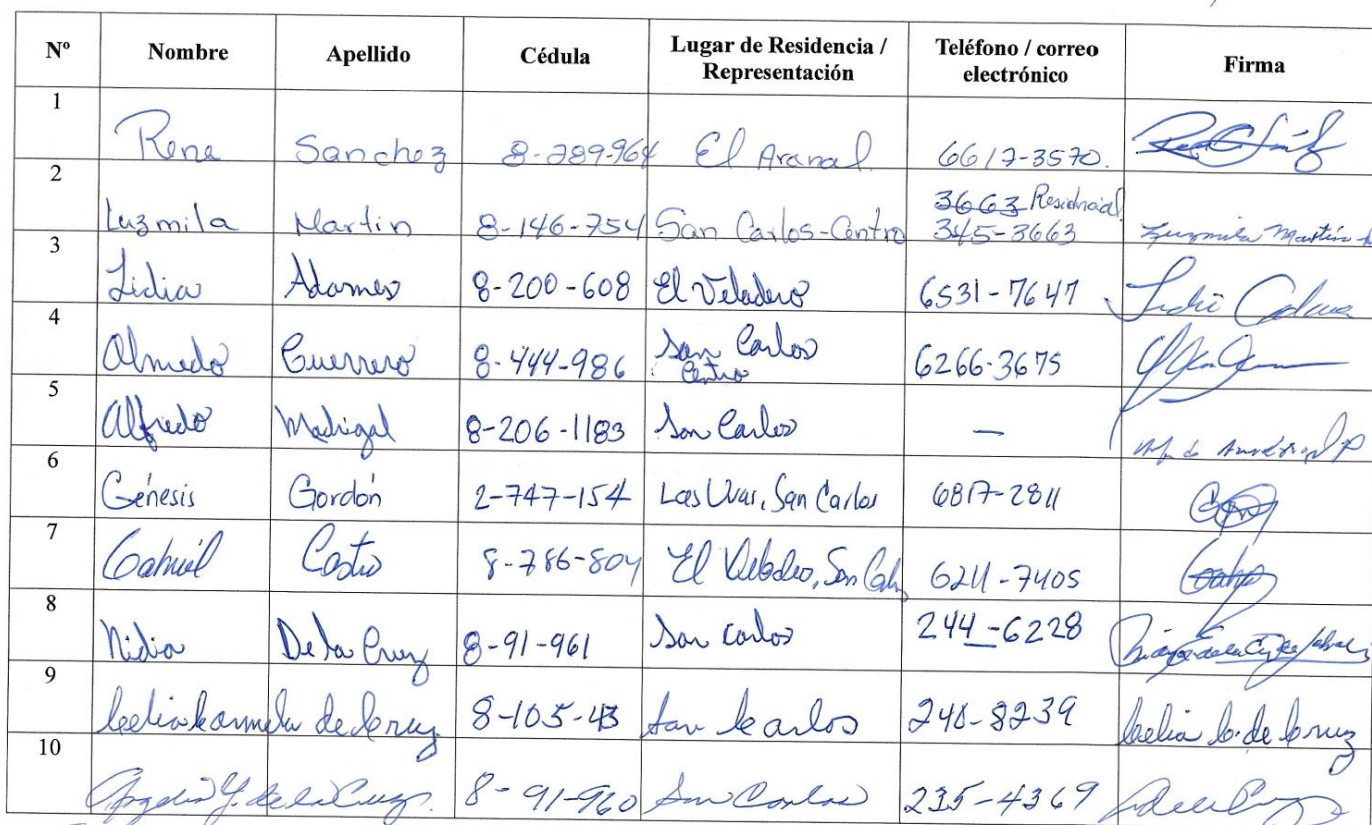 Nº Nombre Apellido Cédula Lugar de Residencia / Representación Teléfono / correo electrónico Firma
1 Rene Sanchez 8-289-964 El Arenal 6617-3570.
2 Luzmila Martin 8-146-754 San Carlos-Centro 3663 Residncial 345-3663 Luzmila Martín
3 Lidia Adames 8-200-608 El Veladero 6531-7647
4 Olmedo Guerrero 8-444-986 San Carlos Centro 6266-3675
5 Alfredo Madrigal 8-206-1183 San Carlos —
6 Génesis Gordón 2-747-154 Las Uvas, San Carlos 6817-2811
7 Gabriel Castro 8-786-804 6211-7405
8 Nidia De la Cruz 8-91-961 San Carlos 244-6228
9 Celia Carmela de Cruz 8-105-43 San Carlos 240-8239 Celia C. de Cruz
10 de la Cruz. 8-91-960 San Carlos 235-4369